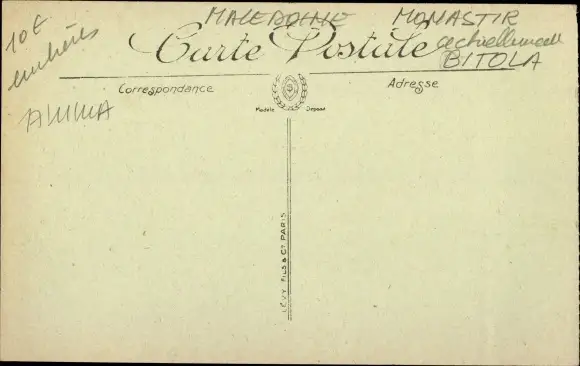 MACEDOINE MONASTIR
10€
enchères
actuellement
BITOLA
Carte Postale
Correspondance
Adresse
Modèle Déposé
LÉVY FILS & Cie PARIS